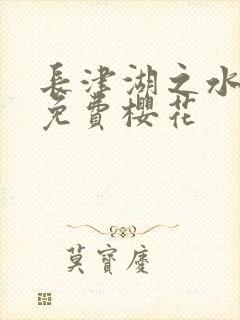 長津湖之水
免費櫻花
莫寶慶